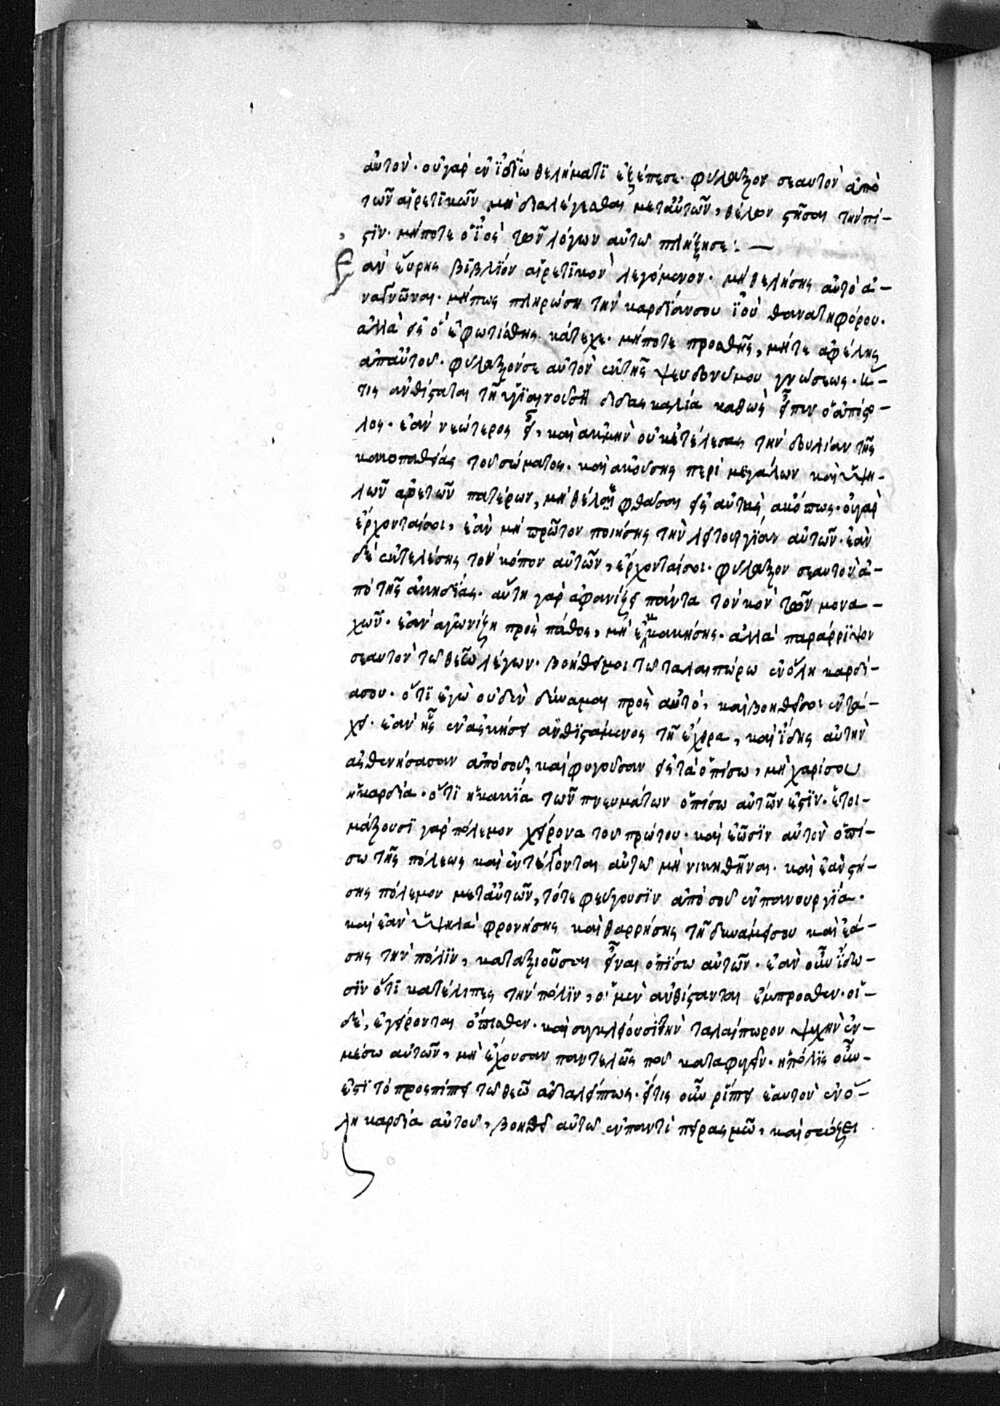 αὐτόν· οὐ γὰρ ἐν ἰδίῳ θελήματι ἐξέπεσε· φύλαξον σεαυτὸν ἀπὸ
τῶν αἱρετικῶν μὴ διαλέγεσθαι μετ' αὐτῶν, θέλων στῆσαι τὴν πί-
στιν· μήποτε ὁ ἰὸς τῶν λόγων αὐτῶν πλήξη σε: —
Ἐὰν εὕρης βιβλίον αἱρετικὸν λεγόμενον· μὴ θελήσης αὐτὸ ἀ-
ναγνῶναι· μήπως πληρώση τὴν καρδίαν σου ἰοῦ θανατηφόρου·
ἀλλὰ εἰς ὃ ἐφωτίσθης κάτεχε· μήποτε προσθῆς, μήτε ἀφέλης
ἀπ' αὐτοῦ· φύλαξον σεαυτὸν ἐκ τῆς ψευδωνύμου γνώσεως· ἥ-
τις ἀνθίσταται τῆ ὑγιαινούση διδασκαλία καθὼς εἶπεν ὁ ἀπόστο-
λος· ἐὰν νεώτερος εἶ, καὶ ἀκμὴν οὐκ ἐτέλεσας τὴν δουλείαν τῆς
κακοπαθείας τοῦ σώματος· καὶ ἀκούσης περὶ μεγάλων καὶ ὑψη-
λῶν ἀρετῶν πατέρων, μὴ θέλε φθάσαι εἰς αὐτὰς ἀκόπως· οὐ γὰρ
ἔρχονταί σοι, ἐὰν μὴ πρῶτον ποιήσης τὴν λειτουργίαν αὐτῶν· ἐὰν
δὲ ἐκτελέσης τὸν κόπον αὐτῶν, ἔρχονταί σοι· φύλαξον σεαυτὸν ἀ-
πὸ τῆς ἀκηδίας· αὕτη γὰρ ἀφανίζει πάντα τὸν κον τῶν μονα-
χῶν· ἐὰν ἀγωνίζη πρὸς πάθος, μὴ ἐκκακήσης· ἀλλὰ παράρριψον
σεαυτὸν τῶ θεῶ λέγων· βοήθει μοι τῶ ταλαιπώρω ἐν ὅλη καρδί-
α σου· ὅτι ἐγὼ οὐδὲν δύναμαι πρὸς αὐτό, καὶ βοηθεῖ σοι ἐν τά-
χει· ἐὰν ἦς ἐν ἀσκήσει ἀνθιστάμενος τῆ ἔχθρα, καὶ ἴδης αὐτὴν
ἀσθενήσασαν ἀπό σου, καὶ φυγοῦσαν εἰς τὰ ὀπίσω, μὴ χαρῇ σου
ἡ καρδία· ὅτι ἡ κακία τῶν πνευμάτων ὀπίσω αὐτῶν ἐστιν· ἑτοι-
μάζουσι γὰρ πόλεμον χείρονα τοῦ πρώτου· καὶ ἐῶσιν αὐτὸν ὀπί-
σω τῆς πόλεως καὶ ἐντέλλονται αὐτῶ μὴ κινηθῆναι· καὶ ἐὰν στή-
σης πόλεμον μετ' αὐτῶν, τότε φεύγουσιν ἀπό σου ἐν πανουργία·
καὶ ἐὰν ὑψηλὰ φρονήσης καὶ θαρρήσης τῆ δυνάμει σου καὶ ἐά-
σης τὴν πόλιν, καταξιοῦσαι εἶναι ὀπίσω αὐτῶν· ἐὰν οὖν ἴδω-
σιν ὅτι κατέλιπες τὴν πόλιν, οἱ μὲν ἀνθίστανται ἔμπροσθεν· οἱ
δὲ, ἐγείρονται ὄπισθεν· καὶ συγκλείουσι τὴν ταλαίπωρον ψυχὴν ἐν
μέσω αὐτῶν, μὴ ἔχουσαν παντελῶς ποῦ καταφυγεῖν· ἡ πόλις οὖν
ἐστι τὸ προσπίπτειν τῶ θεῶ ἀδιαλείπτως· εἴ τις οὖν ῥίπτει ἑαυτὸν ἐν ὅ-
λη καρδία αὐτοῦ, βοηθεῖ αὐτῶ ἐν παντὶ πειρασμῶ, καὶ σώζει